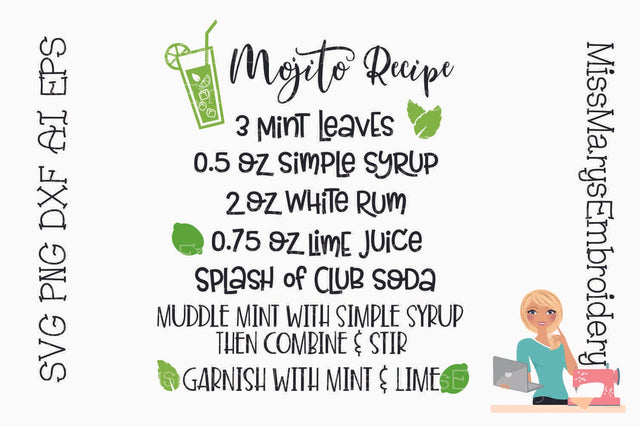 Mojito Recipe
3 Mint Leaves
0.5 oz Simple Syrup
2 oz White Rum
0.75 oz Lime Juice
Splash of Club Soda
MUDDLE MINT WITH SIMPLE SYRUP
THEN COMBINE & STIR
GARNISH WITH MINT & LIME
SVG PNG DXF AI EPS
MissMarysEmbroidery